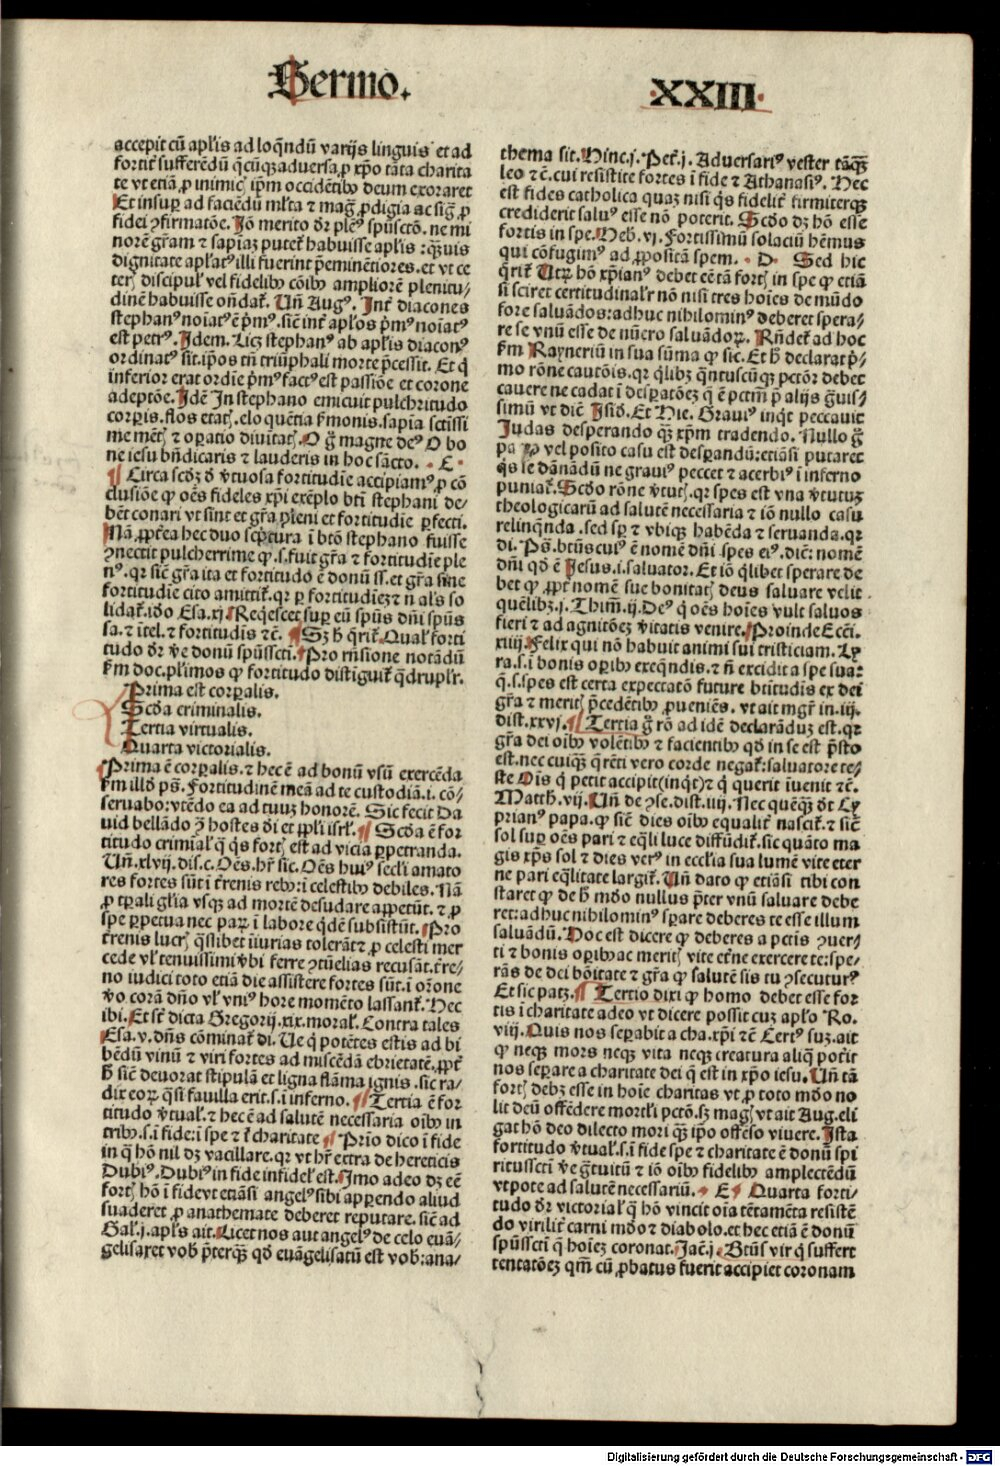 Sermo.
·XXIII·
accepit cū apl'is ad loq̄ndū varijs linguis et ad
fortit' sufferēdū q̄cūqꝫ aduersa, ꝓ xp̄o tāta charita
te vt etiā ꝓ inimic̄ ip̄m occidētibꝰ deum exoraret
Et insup ad faciēdū ml'ta ⁊ maḡ ꝓdigia ac siḡ ꝓ
fidei ꝯfirmatōe. Iō merito dr̄ plenꝰ spūsctō. ne mi
norē gr̄am ⁊ sapiāꝫ putet' habuisse apl'is : q̄uis
dignitate apl'atꝰ illi fuerint p̄eminētiores. et vt ce
teri discipul' vel fidelibꝰ cōibꝰ ampliorē plenitu/
dinē habuisse ondāt'. Un̄ Augꝰ. Int' diacones
stephanꝰ noīatꝰ ē p̄mꝰ. sic̄ int' apl'os p̄mꝰ noīatꝰ
est petrꝰ. Idem. Licꝫ stephanꝰ ab apl'is diaconꝰ
ordinatꝰ sit. ip̄os tn̄ triūphali morte p̄cessit. Et q̄
inferior erat ordīe p̄mꝰ factꝰ est passiōe et corone
adeptōe. Idē In stephano emicuit pulchritudo
corꝑis. flos etat̄. eloquētia f'monis. sapīa sctissi
me mēt̄ ⁊ oꝑatio diuītat̄. O ḡ magne deꝰ O bo
ne iesu bn̄dicaris ⁊ lauderis in hoc sācto. · E ·
¶ Circa scd'ꝫ d' v'tuosa fortitudīe accipiamꝰ ꝓ cō
clusiōe ꝙ oēs fideles xp̄i exēplo bti stephani de/
bēt conari vt sint et gr̄a pleni et fortitudīe ꝑfecti.
Nā ꝓpt'ea hec duo sc'ptura ī btō stephano fuisse
ꝯnectit pulcherrime ꝙ .s. fuit gr̄a ⁊ fortitudīe ple
nꝰ. qꝛ sic̄ gr̄a ita et fortitudo ē donū ss. et gr̄a sine
fortitudīe cito amittit'. qꝛ ꝑ fortitudīeꝫ ⁊ n̄ al's so
lidat'. iō Esa. xj. Reqescet suꝑ eū spūs dn̄i spūs
sa. ⁊ ītel. ⁊ fortitudīs ⁊c̄. ¶ Sꝫ h̄ q̄rit'. Qual' forti
tudo dr̄ v'e donū spūsscti. ¶ Pro rn̄sione notādū
f'm doc. pl'imos ꝙ fortitudo distīguit' q̄drupl'r.
Prima est corꝑalis.
Scd'a criminalis.
Tertia virtualis.
Quarta victorialis.
¶ Prima ē corꝑalis. ⁊ hec ē ad bonū vsū exercēda
f'm illd' ps̄. Fortitudinē meā ad te custodiā. i. cō/
seruabo: vtēdo ea ad tuuꝫ honorē. Sic fecit Da
uid bellādo ꝯ̄ hostes d'i et ppl'i isrl'. ¶ Scd'a ē for
titudo crimial' q̄ q̄s fort̄ est ad vicia ꝑpetranda.
Un̄. xlvij. dis. c. Oēs. hr̄ sic. Oēs huiꝰ secl'i amato
res fortes sūt ī t'renis rebꝰ: ī celestibꝰ debiles. Nā
ꝓ tꝑali gl'ia vsqꝫ ad mortē desudare appetūt. ⁊ ꝓ
spe ꝑpetua nec paꝝ ī labore q̄dē subsistūt. Pro
t'renis lucr̄ q̄slibet iniurias tolerāt ⁊ ꝓ celesti mer
cede vl' tenuissimi v'bi ferre ꝯtūelias recusāt. t're/
no iudici toto etiā die assistere fortes sūt. ī or̄one
v'o corā dn̄o vl' vniꝰ hore momēto lassant'. Hec
ibi. Et st' dicta Gregorij. xix. moral'. Contra tales
Esa. v. dn̄s cōminat' d'i. Ue q̄ potētes estis ad bi
bēdū vinū ⁊ viri fortes ad miscēdā ebrietatē. ꝓpt'
h̄ sic̄ deuorat stipulā et ligna flāma ignis. sic ra/
dix eoꝝ q̄si fauilla erit. s. ī inferno. ¶ Tertia ē for
titudo v'tual'. ⁊ hec ē ad salutē necessaria oībꝰ in
tribꝰ. s. ī fide: ī spe ⁊ ī charitate ¶ Prīo dico ī fide
in q̄ hō nil dꝫ vacillare. qꝛ vt hr̄ extra de hereticis
Dubiꝰ. Dubiꝰ in fide infidel' est. Imo adeo dꝫ eē
fort̄ hō ī fide vt etiāsi angelꝰ sibi apperendo aliud
suaderet ꝓ anathemate deberet reputare. sic̄ ad
Gal'. j. apl's ait. Licet nos aut angelꝰ de celo euā/
gelisaret vob̄ p̄terqꝫ qd' euāgelisatū est vob̄: ana/
thema sit. Hinc. j. Pet'. j. Aduersariꝰ vester tāqꝫ
leo ⁊c̄. cui resistite fortes ī fide ⁊ Athanasiꝰ. Hec
est fides catholica quaꝫ nisi q̄s fidelit' firmiterqꝫ
crediderit saluꝰ esse nō poterit. Scd'o dꝫ hō esse
fortis in spe. Heb. vj. Fortissimū solaciū hēmus
qui cōfugimꝰ ad ꝓpositā spem. · D· Sed hic
q̄rit' Utꝝ hō xp̄ianꝰ debet eē tā fort̄ in spe ꝙ etiā
si sciret certitudinal'r nō nisi tres hoīes de mūdo
fore saluādos: adhuc nihilominꝰ deberet spera/
re se vnū esse de nūero saluādoꝝ. Rn̄det' ad hoc
f'm Rayneriū in sua sūma ꝙ sic. Et h̄ declarat p̄/
mo rōne cautōis. qꝛ q̄libꝫ q̄ntuscūqꝫ pctōr debet
cauere ne cadat ī desꝑatōeꝫ q̄ ē pctm̄ p̄ alijs ḡuis/
simū vt dic̄ Isid'. Et Hie. Grauiꝰ inq̄t peccauit
Iudas desperando qꝫ xp̄m tradendo. Nullo ḡ
pa ꝙ vel posito casu est desꝑandū: etiāsi putaret
q̄s se dānādū ne grauiꝰ peccet ⁊ acerbiꝰ ī inferno
puniat'. Scd'o rōne v'tut̄. qꝛ spes est vna v'tutuꝫ
theologicarū ad salutē necessaria ⁊ iō nullo casu
relinq̄nda. sed sꝑ ⁊ vbiqꝫ habēda ⁊ seruanda. qꝛ
d'i. Ps̄. btūs cuiꝰ ē nomē dn̄i spes eiꝰ. dic̄: nomē
dn̄i qd' ē Iesus. i. saluator. Et iō q̄libet sperare de
bet ꝙ ꝓpt' nomē sue bonitat̄ deus saluare velit
quēlibꝫ. j. Thim̄. ij. Deꝰ q̄ oēs hoīes vult saluos
fieri ⁊ ad agnitōeꝫ v'itatis venire. Proinde Ecc̄i.
xiiij. Felix qui nō habuit animi sui tristiciam. Ly
ra. s. ī bonis oꝑibꝰ exeq̄ndis. ⁊ n̄ excidit a spe sua:
q̄. s. spes est certa expectatō future btitudīs ex dei
gr̄a ⁊ merit̄ p̄cedētibꝰ ꝓueniēs. vt ait mgr̄ in. iij.
dist. xxvj. ¶ Tertia ḡ rō ad idē declarāduꝫ est. qꝛ
gr̄a dei oībꝰ volētibꝰ ⁊ facientibꝰ qd' in se est p̄sto
est. nec cuiqꝫ q̄rēti vero corde negat': saluatore te/
ste Oīs q̄ petit accipit (inq̄t) ⁊ q̄ querit īuenit ⁊c̄.
Matth. vij. Un̄ de ꝯse. dist. iiij. Nec quēqꝫ d't Cy
prianꝰ papa. ꝙ sic̄ dies oībꝰ equalit' nascit'. ⁊ sic̄
sol suꝑ oēs pari ⁊ eq̄li luce diffūdit'. sic quāto ma
gis xp̄s sol ⁊ dies verꝰ in eccl'ia sua lumē vite eter
ne pari eq̄litate largit'. Un̄ dato ꝙ etiāsi tibi con
staret ꝙ de h̄ mōdo nullus p̄ter vnū saluare debe
ret: adhuc nihilominꝰ sꝑare deberes te esse illum
saluādū. Hoc est dicere ꝙ deberes a pctis ꝯuer/
ti ⁊ bonis oꝑibꝰ ac merit̄ vite et'ne exercere te: spe/
rās de dei bōitate ⁊ gr̄a ꝙ salutē sis tu ꝯsecuturꝰ
Et sic patꝫ. ¶ Tertio dixi ꝙ homo debet esse for
tis ī charitate adeo vt dicere possit cuꝫ apl'o Ro.
viij. Quis nos seꝑabit a cha. xp̄i ⁊c̄ Certꝰ suꝫ. ait
ꝙ neqꝫ mors neqꝫ vita neqꝫ creatura aliq̄ pot'it
nos seꝑare a charitate dei q̄ est in xp̄o iesu. Un̄ tā
fort̄ debꝫ esse in hoīe charitas vt ꝓ toto mōdo no
lit deū offēdere mortl'i pctō. sꝫ magꝭ vt ait Aug. eli
gat hō deo dilecto mori qꝫ ip̄o offēso viuere. Ista
fortitudo v'tual'. s. ī fide spe ⁊ charitate ē donū spi
ritusscti v'e ḡtuitū ⁊ iō oībꝰ infidelibꝰ amplectēdū
vtpote ad salutē necessariū. · E · Quarta forti/
tudo dr̄ victorial' q̄ hō vincit oīa tētamēta resistē
do virilit' carni mōdo ⁊ diabolo. et hec etiā ē donū
spūsscti q̄ hoīeꝫ coronat. Iac̄. j. Btūs vir q̄ suffert
tentatōeꝫ qm̄ cū ꝓbatus fuerit accipiet coronam
Digitalisierung gefördert durch die Deutsche Forschungsgemeinschaft - DFG